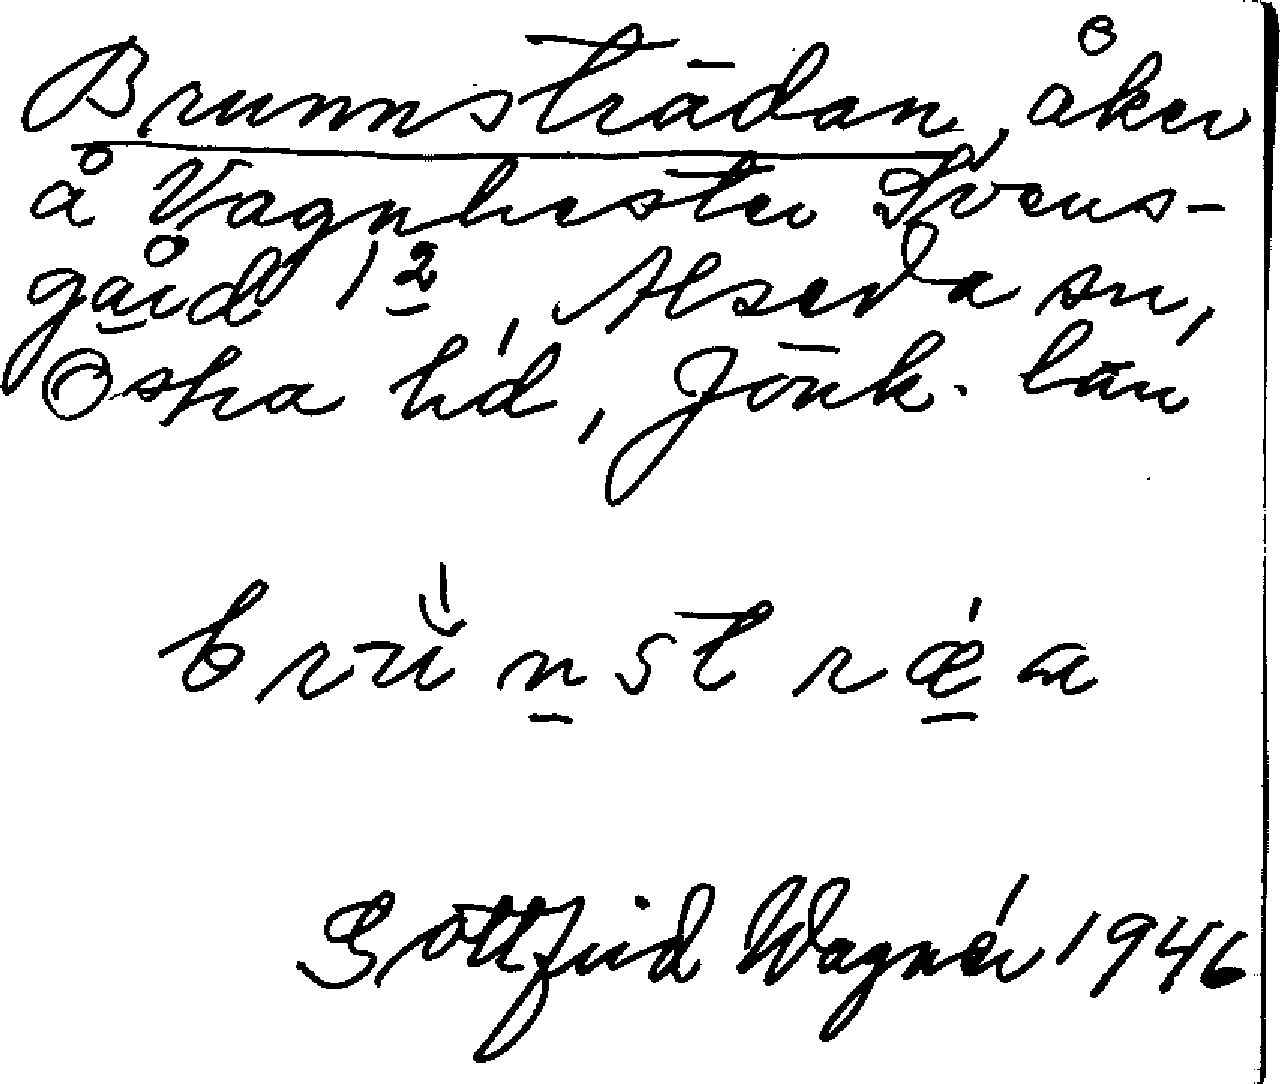 Brunnsträdan, åker
å Vagnhester Svens-
gård 1², Alseda sn,
Östra hd, Jönk. län
brünstræa
Gottfrid Wagnér 1946